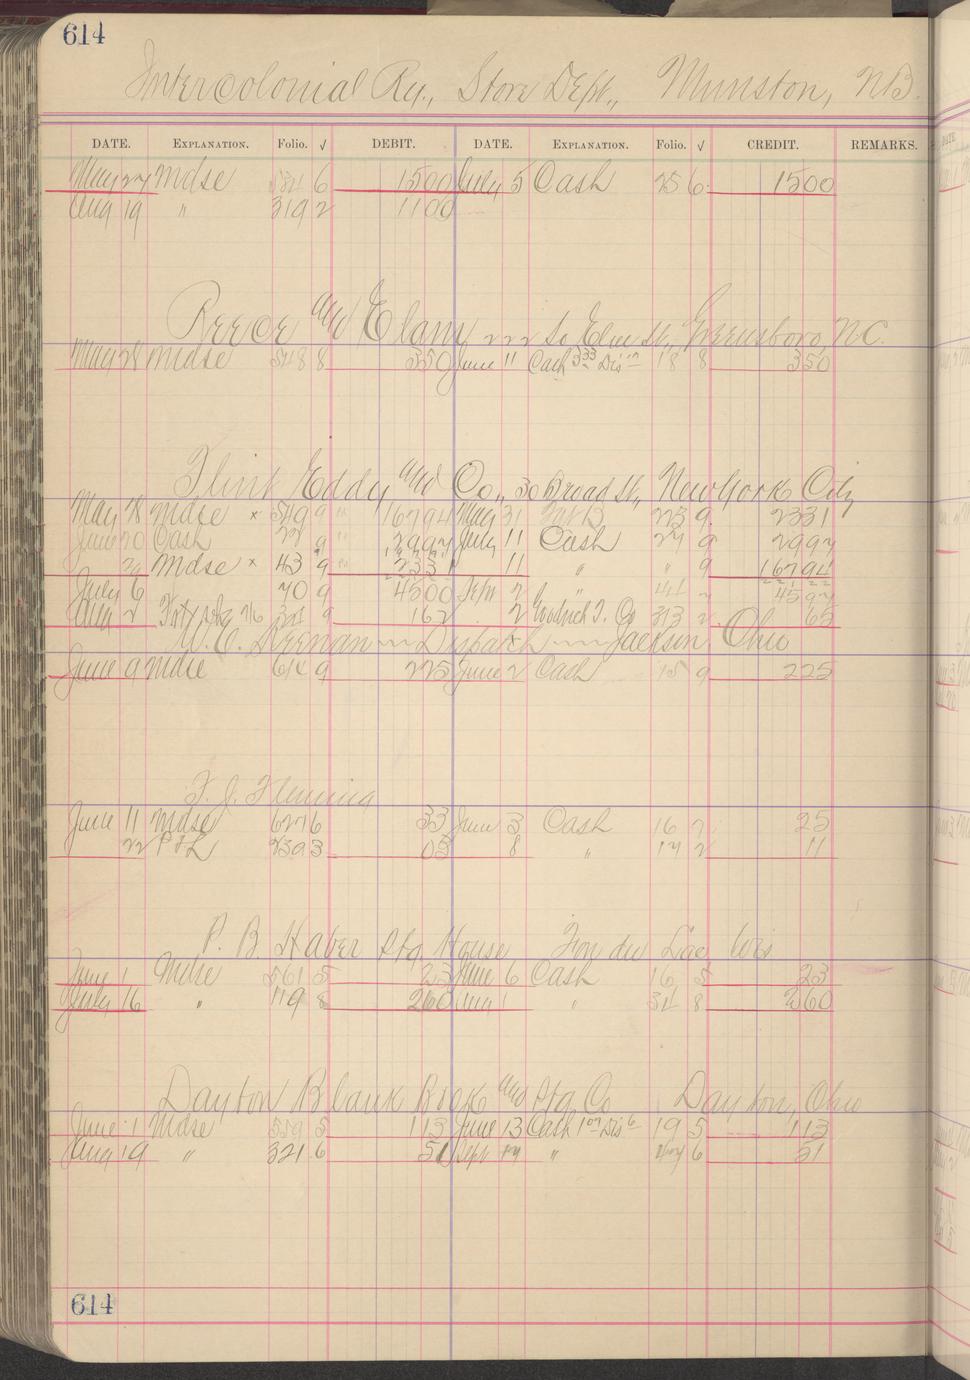 614
Intercolonial Ry., Store Dept., Munston, NB.
DATE. EXPLANATION. Folio. √ DEBIT. DATE. EXPLANATION. Folio. √ CREDIT. REMARKS.
May 27 Mdse 6 1500 July 5 Cash 25 6 1500
Aug 19 " 319 2 1100
Reece and Elam So Elm St, Greensboro, NC.
May 28 Mdse 548 8 350 June 11 Cash 333 Dis 18 8 350
Flint Eddy and Co., 30 Broad St, New York City
May 28 Mdse x 549 9 16794 May 31 223 9 2331
June 20 Cash 9 2997 July 11 Cash 27 9 2997
Mdse x 43 9 2331 11 " " 9 16794
July 6 70 9 4500 Sept 2 " 44 2
Aug 2 9 162 2 Goodrich T. Co 313 2 65
W. C. Keenan Dispatch Jackson, Ohio
June 9 Mdse 614 9 225 June 2 Cash 15 9 225
F. J. Fleming
June 11 Mdse 627 6 33 June 3 Cash 16 7 25
22 P&L 239 3 03 8 " 17 2 11
P. B. Haber Ptg. House Fon du Lac Wis
June 1 Mdse 561 5 23 June 6 Cash 16 5 23
July 16 " 119 8 260 Aug 1 " 34 8 260
Dayton Blank Book and Ptg Co Dayton, Ohio
June 1 Mdse 559 5 113 June 13 Cash Dis 19 5 113
Aug 19 " 321 6 51 Sept 17 " 6 51
614